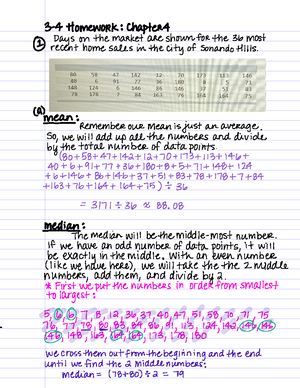 3-4 Homework: Chapter 4
① Days on the market are shown for the 36 most
recent home sales in the city of Sonando Hills.
80 58 47 142 12 70 173 113 146
40 6 91 77 36 180 8 5 71
148 124 6 146 86 146 37 51 83
78 178 7 84 163 76 164 164 75
(a)
mean:
Remember our mean is just an average.
So, we will add up all the numbers and divide
by the total number of data points.
(80+58+47+142+12+70+173+113+146+
40+6+91+77+36+180+8+5+71+148+124
+6+146+86+146+37+51+83+78+178+7+84
+163+76+164+164+75) ÷ 36
= 3171 ÷ 36 ≈ 88.08
median:
The median will be the middle-most number.
If we have an odd number of data points, it will
be exactly in the middle. With an even number
(like we have here), we will take the the 2 middle
numbers, add them, and divide by 2.
* First we put the numbers in order from smallest
to largest:
5, 6, 6, 7, 8, 12, 36, 37, 40, 47, 51, 58, 70, 71, 75
76, 77, 78, 80, 83, 84, 86, 91, 113, 124, 142, 146, 146
146, 148, 163, 164, 164, 173, 178, 180
we cross them out from the beginning and the end
until we find the 2 middle numbers:
median = (78+80) ÷ 2 = 79